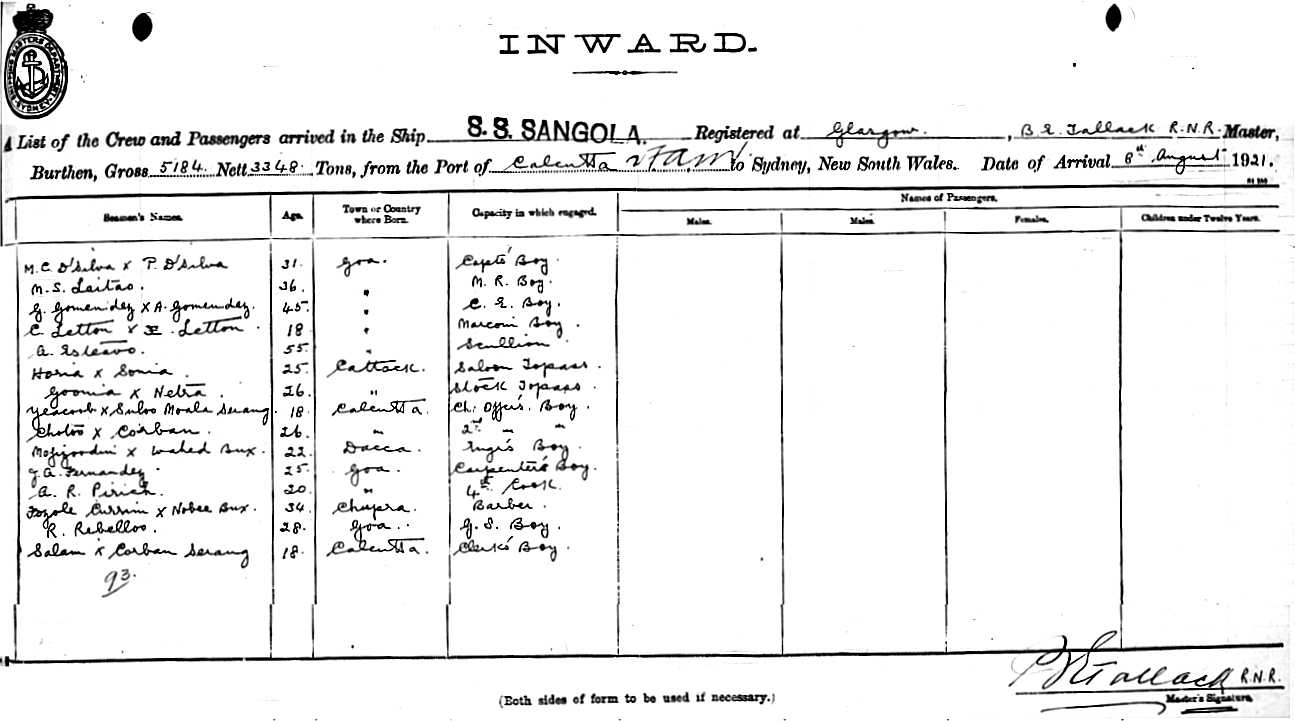 SHIPPING MASTERS DEPARTMENT SYDNEY
INWARD.
A List of the Crew and Passengers arrived in the Ship S.S. SANGOLA. Registered at Glasgow. , B E Tallack R.N.R. Master,
Burthen, Gross 5184. Nett 3348. Tons, from the Port of Calcutta to Sydney, New South Wales. Date of Arrival 8th August 1921.
Seamen's Names. Age. Town or Country where Born. Capacity in which engaged. Names of Passengers.
Males. Males. Females. Children under Twelve Years.
M. C. D'Silva x P. D'Silva 31. Goa. Capts' Boy.
M. S. Leitao. 36. " M. R. Boy.
G. Gomendez x A. Gomendez. 45. " C. E. Boy.
C. Letton x . Letton. 18 " Marconi Boy.
A. Esteavo. 55. " Scullion.
Haria x Sonia. 25. Cattack. Saloon Topass.
Goomia x Netra. 26. " Stock Topass.
Yeacoob x Suloo Moala Serang. 18 Calcutta. Ch. Offers. Boy.
Chotoo x Corban. 26. " 2nd " "
Mofizoodin x Wahed Bux. 22. Dacca. Engr's Boy.
J. A. Fernandez. 25. Goa. Carpenter's Boy.
A. R. Pirich. 20. " 4th Cook.
Fozole Currim x Nobee Bux. 34 Chupra. Barber.
R. Rebellos. 28. Goa. G. S. Boy.
Salam x Corban Serang 18. Calcutta. Clerk's Boy.
93.
B E Tallack R.N.R.
Master's Signature.
(Both sides of form to be used if necessary.)